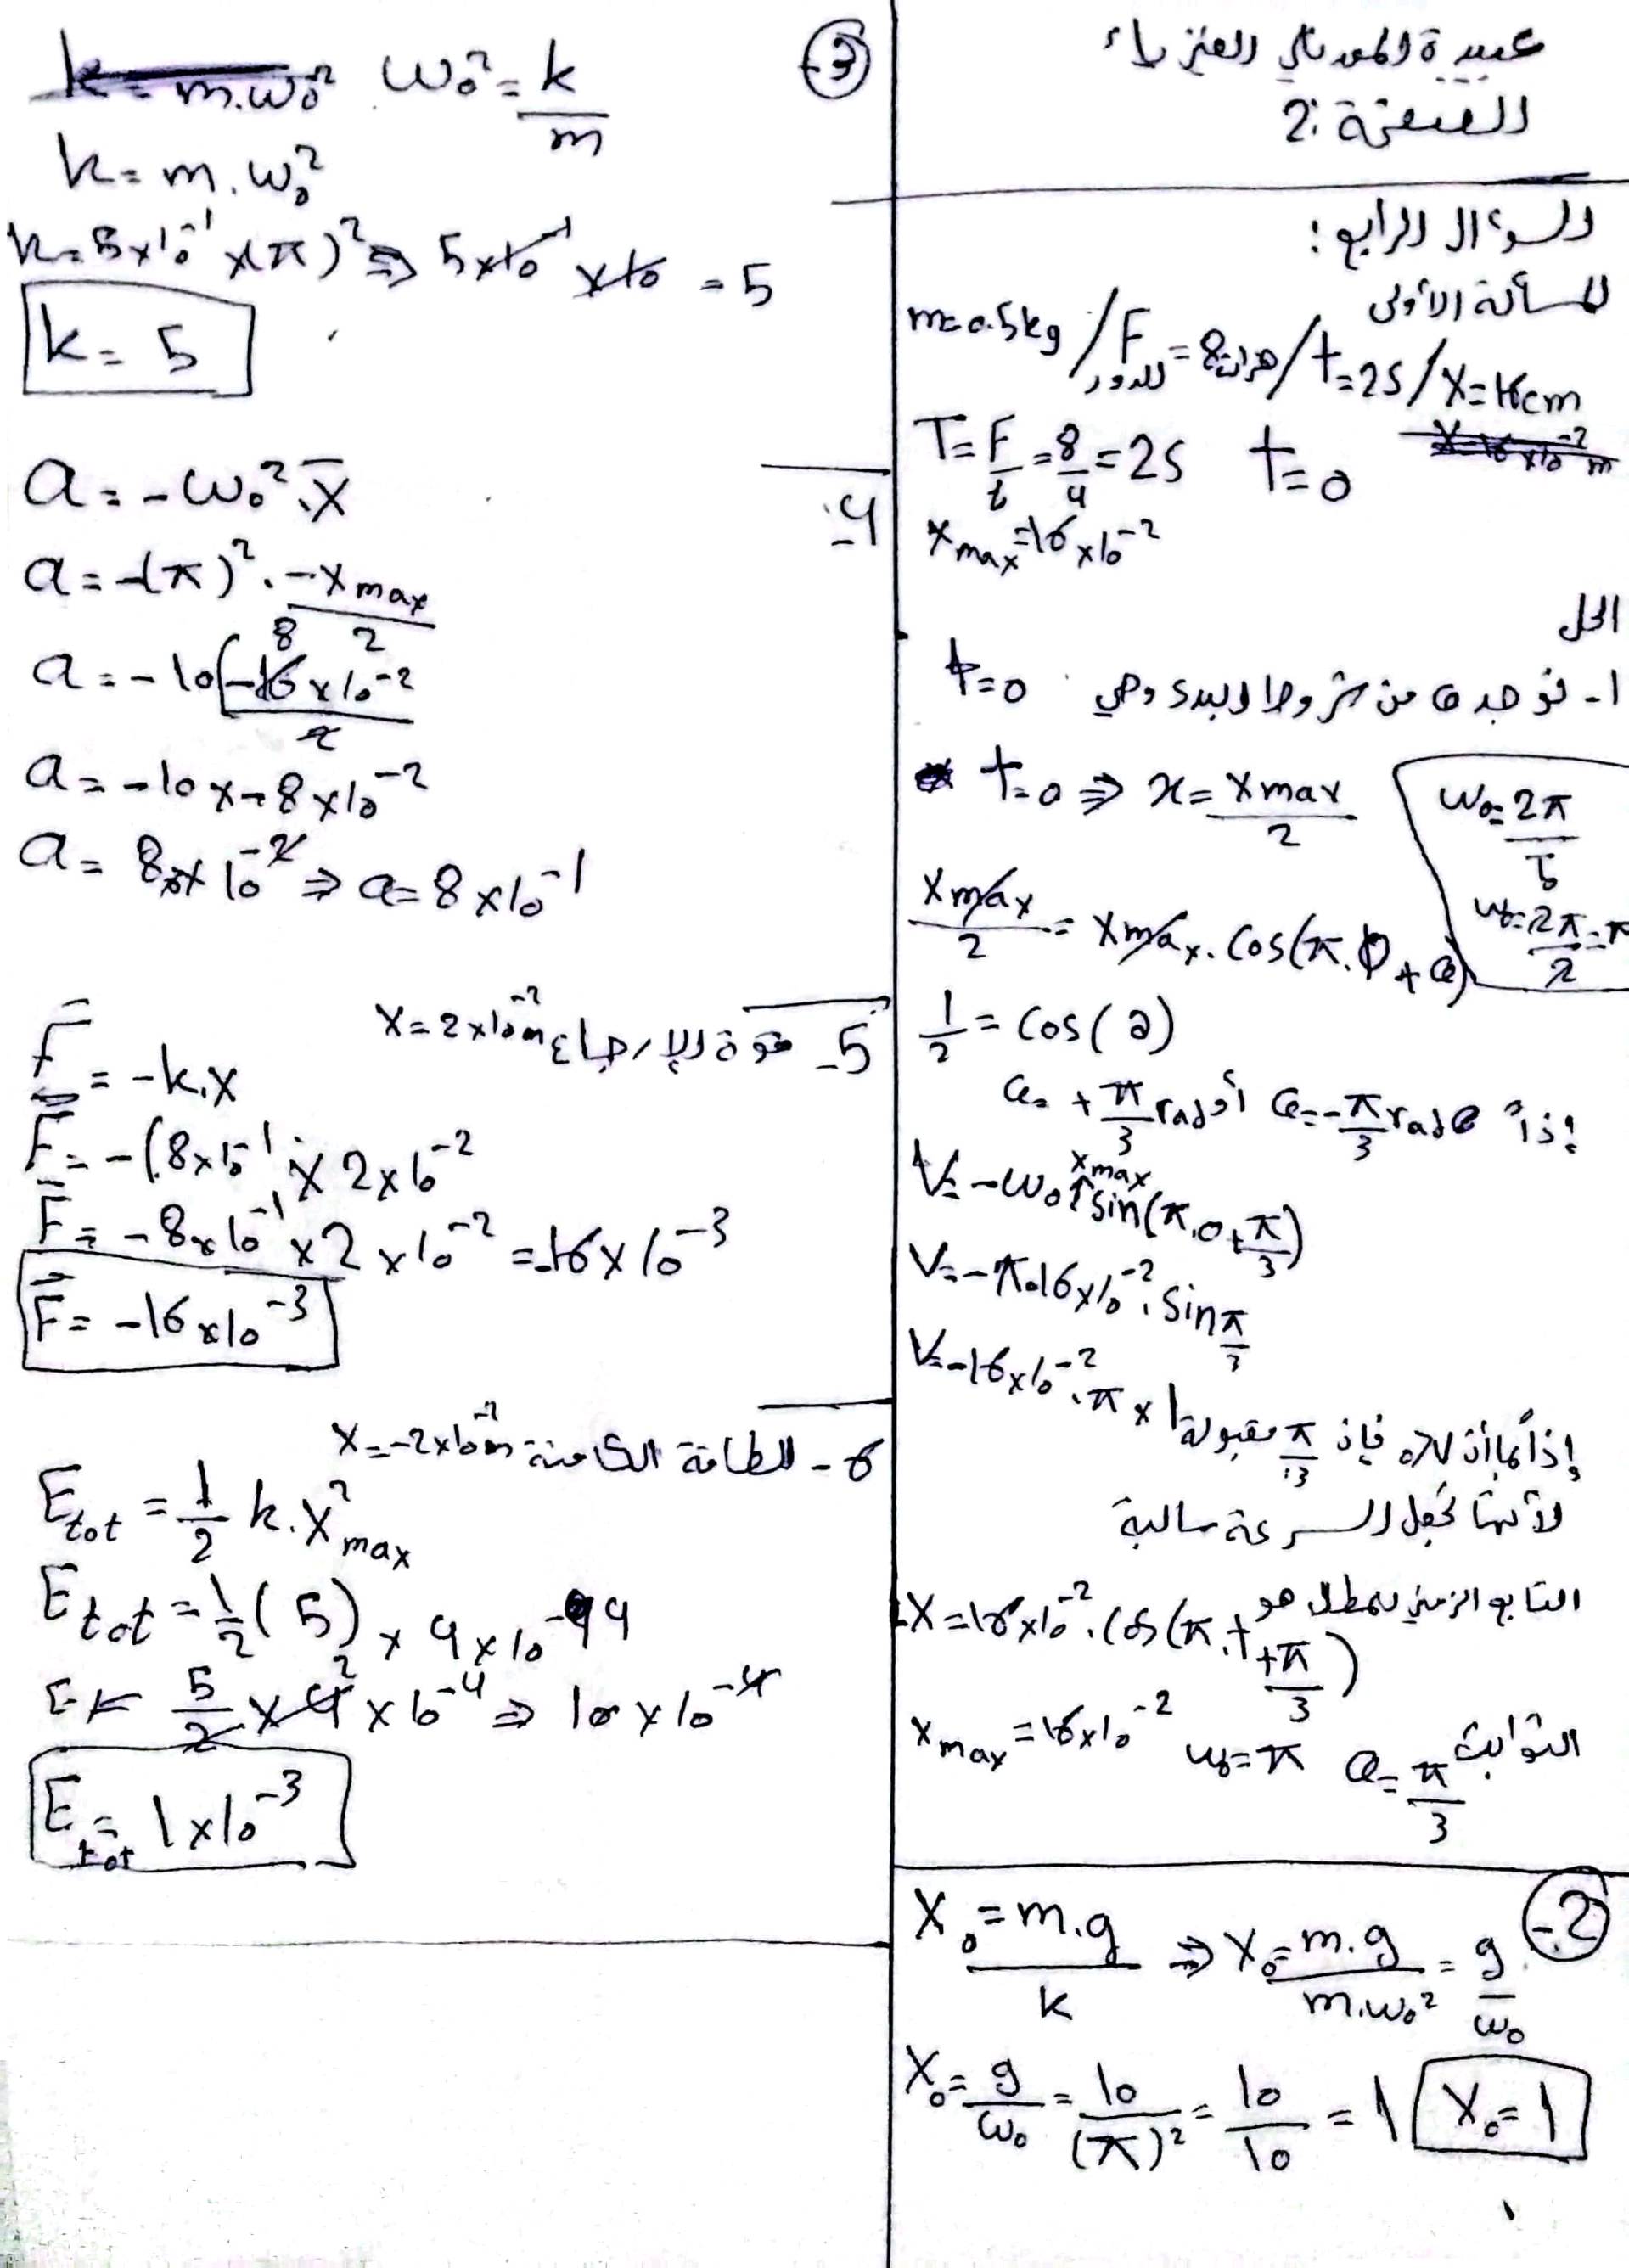 عبيدة المعدناني الفيزياء
الصفحة: 2
السؤال الرابع:
المسألة الأولى
m=0.5kg / F = 8 هزات للدور / t=2s / X=16cm
T= F/t = 8/4 = 2s t=0
X max =16x10^-2
الحل
1- نوجد φ من شروط البدء وهي t=0
t=0 ⇒ x= Xmax/2
ω0= 2π/T0
ω0= 2π/2 = π
Xmax/2 = Xmax. Cos(π.0 + φ)
1/2 = Cos(φ)
إذاً φ=-π/3 rad أو φ= +π/3 rad
V= -ω0 xmax sin(π.0+π/3)
V=-π.16x10^-2. Sin π/3
V=-16x10^-2.π x 1
إذاً بما أن فإن π/3 مقبولة
لأنها تجعل السرعة سالبة
التابع الزمني للمطال هو
X=16x10^-2. Cos(π.t+π/3)
الثوابت φ= π/3 ω0=π Xmax =16x10^-2
2-
X0= m.g/k ⇒ X0= m.g/m.ω0^2 = g/ω0
X0= g/ω0 = 10/(π)^2 = 10/10 = 1 X0=1
3-
k= m.ω0^2 ω0^2= k/m
k= m.ω0^2
k= 5x10^-1 x(π)^2 ⇒ 5x10^-1 x10 = 5
k= 5
4-
a= -ω0^2.x̄
a= -(π)^2. -Xmax/2
a= -10(-16x10^-2/2 8
a= -10x-8x10^-2
a= 8x10^-2 ⇒ a=8x10^-1
5- قوة الإرجاع X=2x10^-2m
F = -k.X
F= -(8x10^-1 x 2x10^-2
F= -8x10^-1 x2x10^-2 =-16x10^-3
F= -16x10^-3
6- الطاقة الكامنة X=-2x10^-2m
Etot = 1/2 k.X^2max
Etot = 1/2 (5) x 4x10^-4
E= 5/2 x4x10^-4 ⇒ 10x10^-4
Etot= 1x10^-3